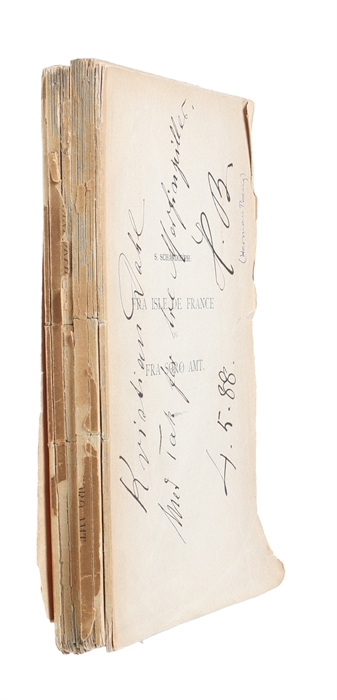 Kristian Dahl
med Tak for
H. B.
(Herman Bang)
4.5.88.
S. SCHANDORPH
FRA ISLE DE FRANCE
FRA SORO AMT.